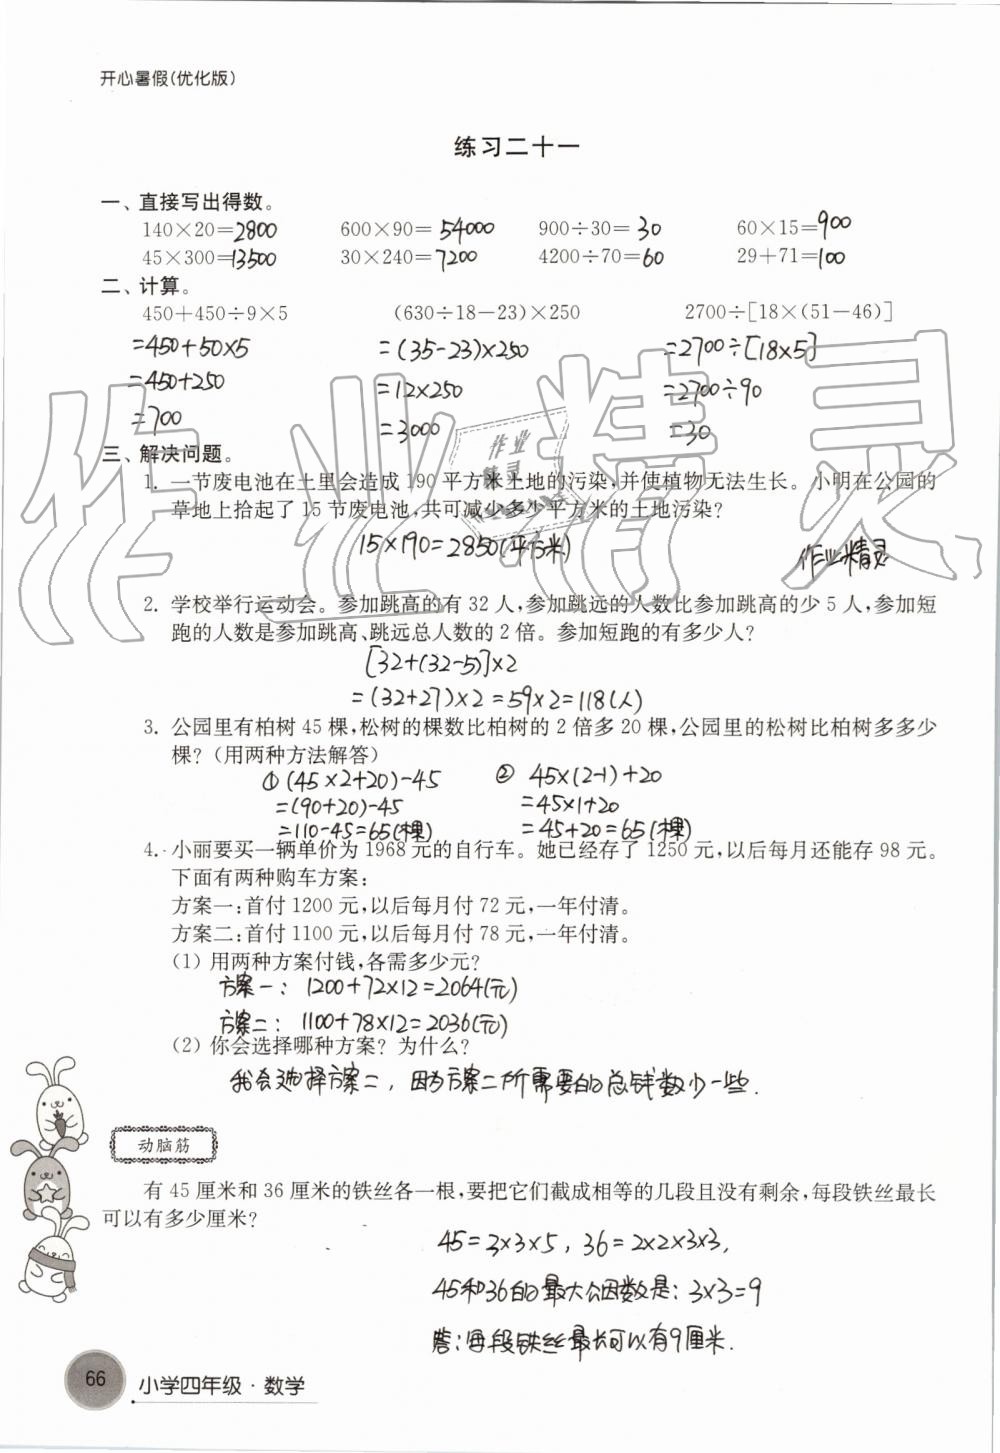 开心暑假(优化版)
练习二十一
一、直接写出得数。
140×20=2800 600×90=54000 900÷30=30 60×15=900
45×300=13500 30×240=7200 4200÷70=60 29+71=100
二、计算。
450+450÷9×5 (630÷18-23)×250 2700÷[18×(51-46)]
=450+50×5 =(35-23)×250 =2700÷[18×5]
=450+250 =12×250 =2700÷90
=700 =3000 =30
三、解决问题。
1. 一节废电池在土里会造成190平方米土地的污染,并使植物无法生长。小明在公园的
草地上拾起了15节废电池,共可减少多少平方米的土地污染?
15×190=2850(平方米)
作业精灵
2. 学校举行运动会。参加跳高的有32人,参加跳远的人数比参加跳高的少5人,参加短
跑的人数是参加跳高、跳远总人数的2倍。参加短跑的有多少人?
[32+(32-5)]×2
=(32+27)×2=59×2=118(人)
3. 公园里有柏树45棵,松树的棵数比柏树的2倍多20棵,公园里的松树比柏树多多少
棵?(用两种方法解答)
① (45×2+20)-45 ② 45×(2-1)+20
=(90+20)-45 =45×1+20
=110-45=65(棵) =45+20=65(棵)
4. 小丽要买一辆单价为1968元的自行车。她已经存了1250元,以后每月还能存98元。
下面有两种购车方案:
方案一:首付1200元,以后每月付72元,一年付清。
方案二:首付1100元,以后每月付78元,一年付清。
(1) 用两种方案付钱,各需多少元?
方案一: 1200+72×12=2064(元)
方案二: 1100+78×12=2036(元)
(2) 你会选择哪种方案? 为什么?
我会选择方案二,因为方案二所需要的总钱数少一些.
动脑筋
有45厘米和36厘米的铁丝各一根,要把它们截成相等的几段且没有剩余,每段铁丝最长
可以有多少厘米?
45=3×3×5, 36=2×2×3×3,
45和36的最大公因数是:3×3=9
答:每段铁丝最长可以有9厘米.
66 小学四年级·数学
作业精灵
作业
精灵